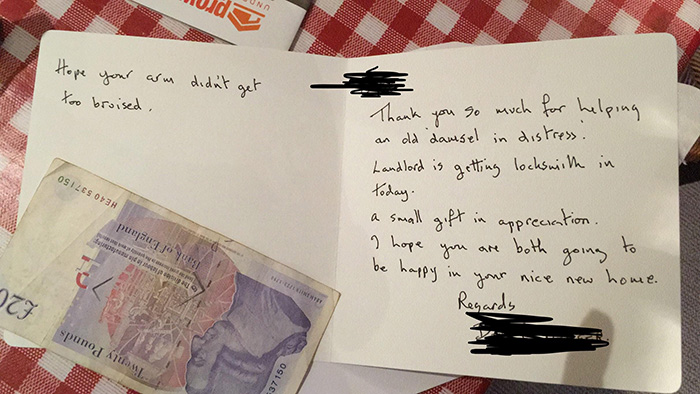 prow
UND
Hope your arm didn't get
too bruised.
Thank you so much for helping
an old 'damsel in distress'.
Landlord is getting locksmith in
today.
A small gift in appreciation.
I hope you are both going to
be happy in your nice new home.
Regards
HE40 537150
Bank of England
£20
Twenty Pounds
37150